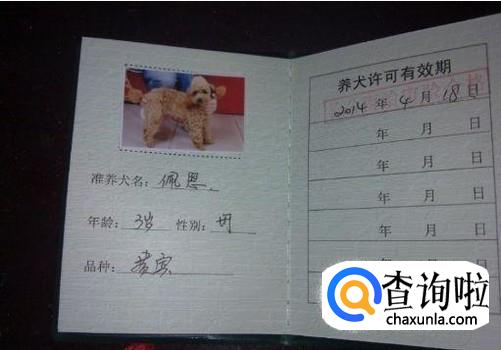 准养犬名：佩恩
年龄：3岁 性别：
品种：贵宾
养犬许可有效期
2014年4月18日
年 月 日
年 月 日
年 月 日
年 月 日
年 月 日
年 月
查询啦
chaxunla.com